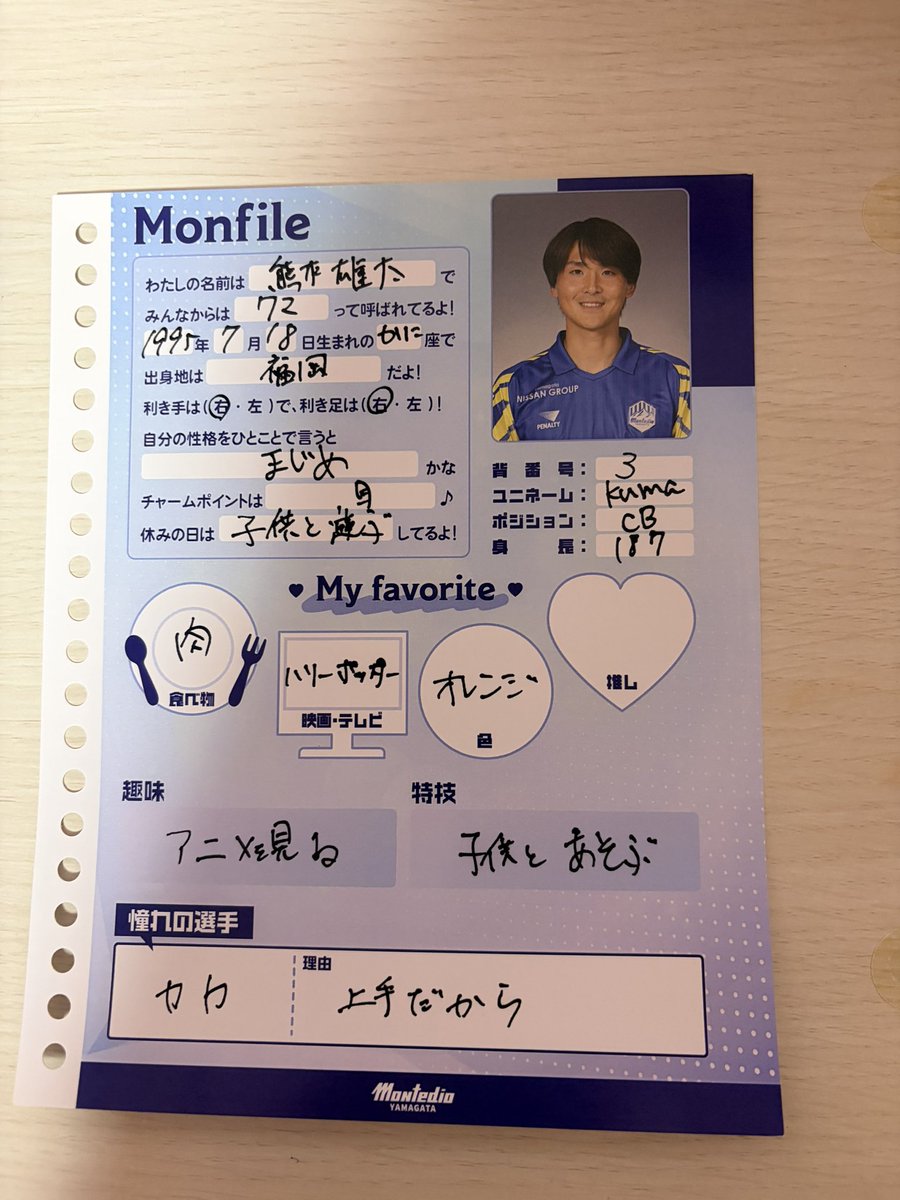 Monfile
わたしの名前は 熊本雄太 で
みんなからは クマ って呼ばれてるよ!
1995年 7月 18日生まれの かに座で
出身地は 福岡 だよ!
利き手は(右・左)で、利き足は(右・左)!
自分の性格をひとことで言うと
まじめ かな
チャームポイントは 目 ♪
休みの日は 子供と遊ぶ してるよ!
NISSAN GROUP
PENALTY
Montedio
背番号: 3
ユニネーム: Kuma
ポジション: CB
身長: 187
My favorite
肉
食べ物
ハリーポッター
映画・テレビ
オレンジ
色
推し
趣味
アニメを見る
特技
子供とあそぶ
憧れの選手
カカ
理由
上手だから
Montedio
YAMAGATA